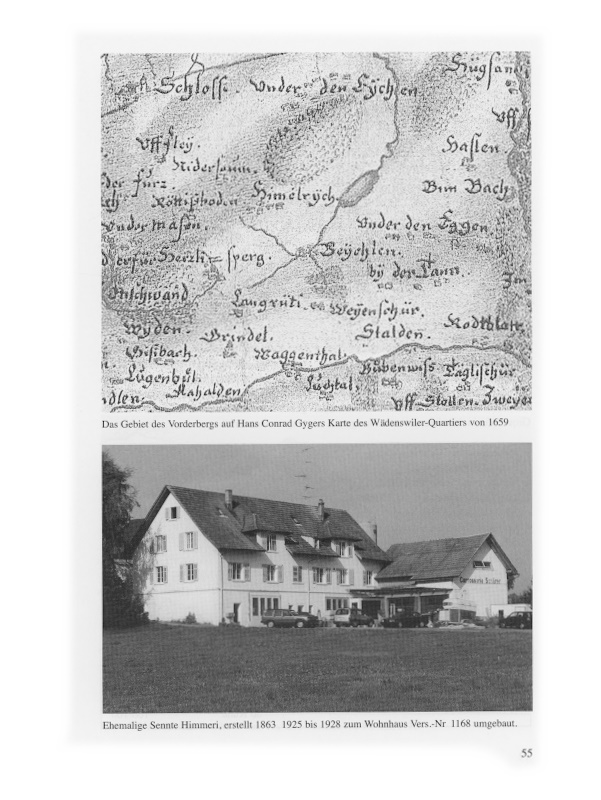 Schloss. Vnder den Eychen
Hügsand
Vff
Vffsley.
Haslen
Nidersoum.
der fürz.
Röttißboden
Himelrych
Bim Bach
Vnder masen.
Vnder den Eggen
Herzlisperg.
Beychlen.
by der Tann.
Langrüti.
Weyenschür.
Wyden.
Grindel.
Stalden.
Rodtblatt
Gisibach.
Waggenthal.
Bübenwiss
Täglischür
Lugenbül.
Rahalden
Luchtal
Vff Stollen. Zweyer
Das Gebiet des Vorderbergs auf Hans Conrad Gygers Karte des Wädenswiler-Quartiers von 1659
Ehemalige Sennte Himmeri, erstellt 1863 1925 bis 1928 zum Wohnhaus Vers.-Nr 1168 umgebaut.
55